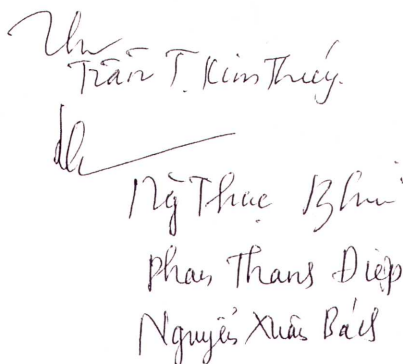 Trần T. Kim Thuý.
Ng Thục
Phan Thanh Điệp
Nguyễn Xuân Bách